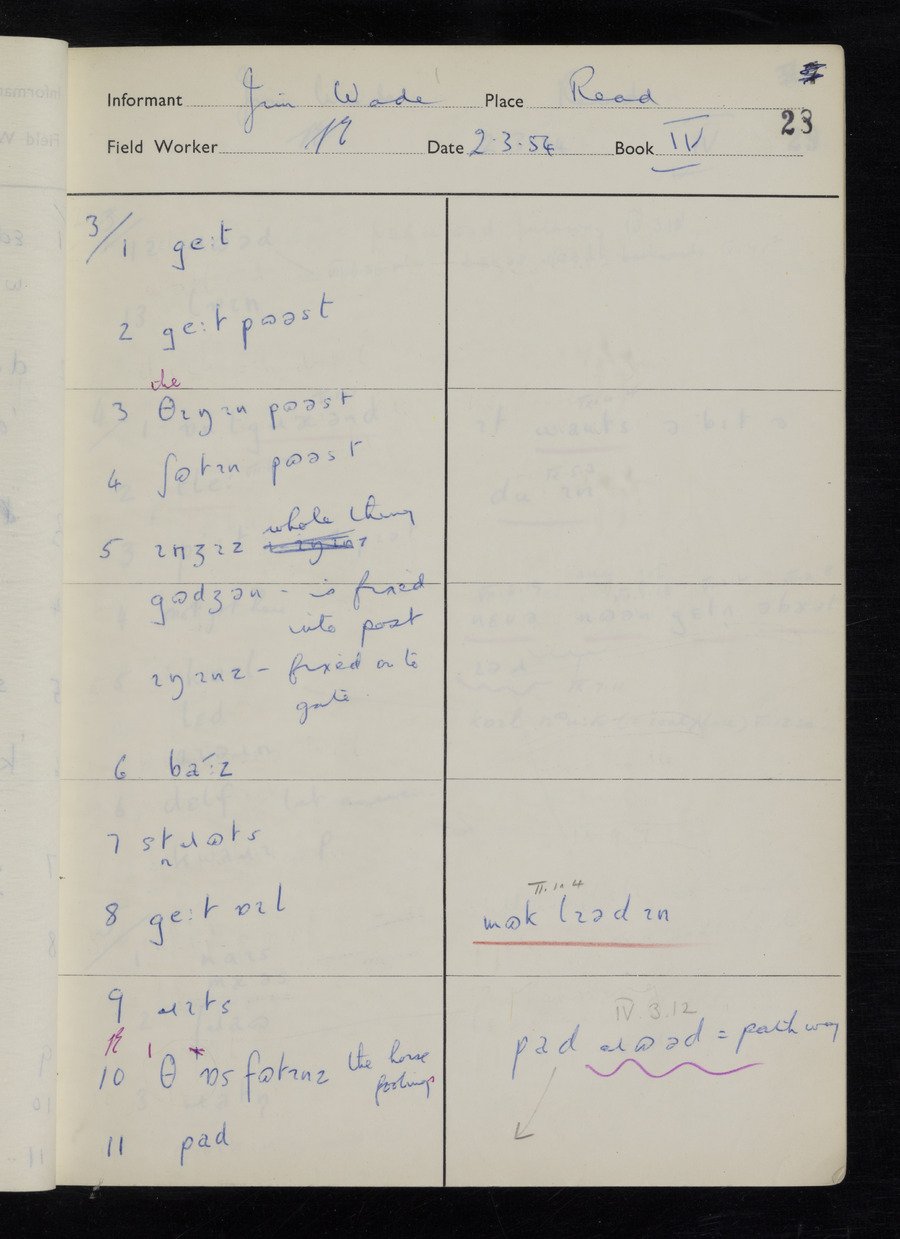 Informant Jim Wade Place Read
23
Field Worker Date 2.3.54 Book IV
3/1 ge:t
2 ge:t pɷəst
the
3 θɪŋɪn pɷəst
4 ʃɷtɪn pɷəst
whole thing
5 ɪnʒɪz
gɷdʒən - is fixed
into post
ɪŋɪnz - fixed on to
gate
6 ba:z
7 stɹɷts
8 ge:t ɒɪl
II.10.4
mɷk lɪədɪn
9 ɹɪts
10 θ ɒs fɷtɪnz the horse
footings
IV 3.12
pad ɹɷəd = path way
11 pad